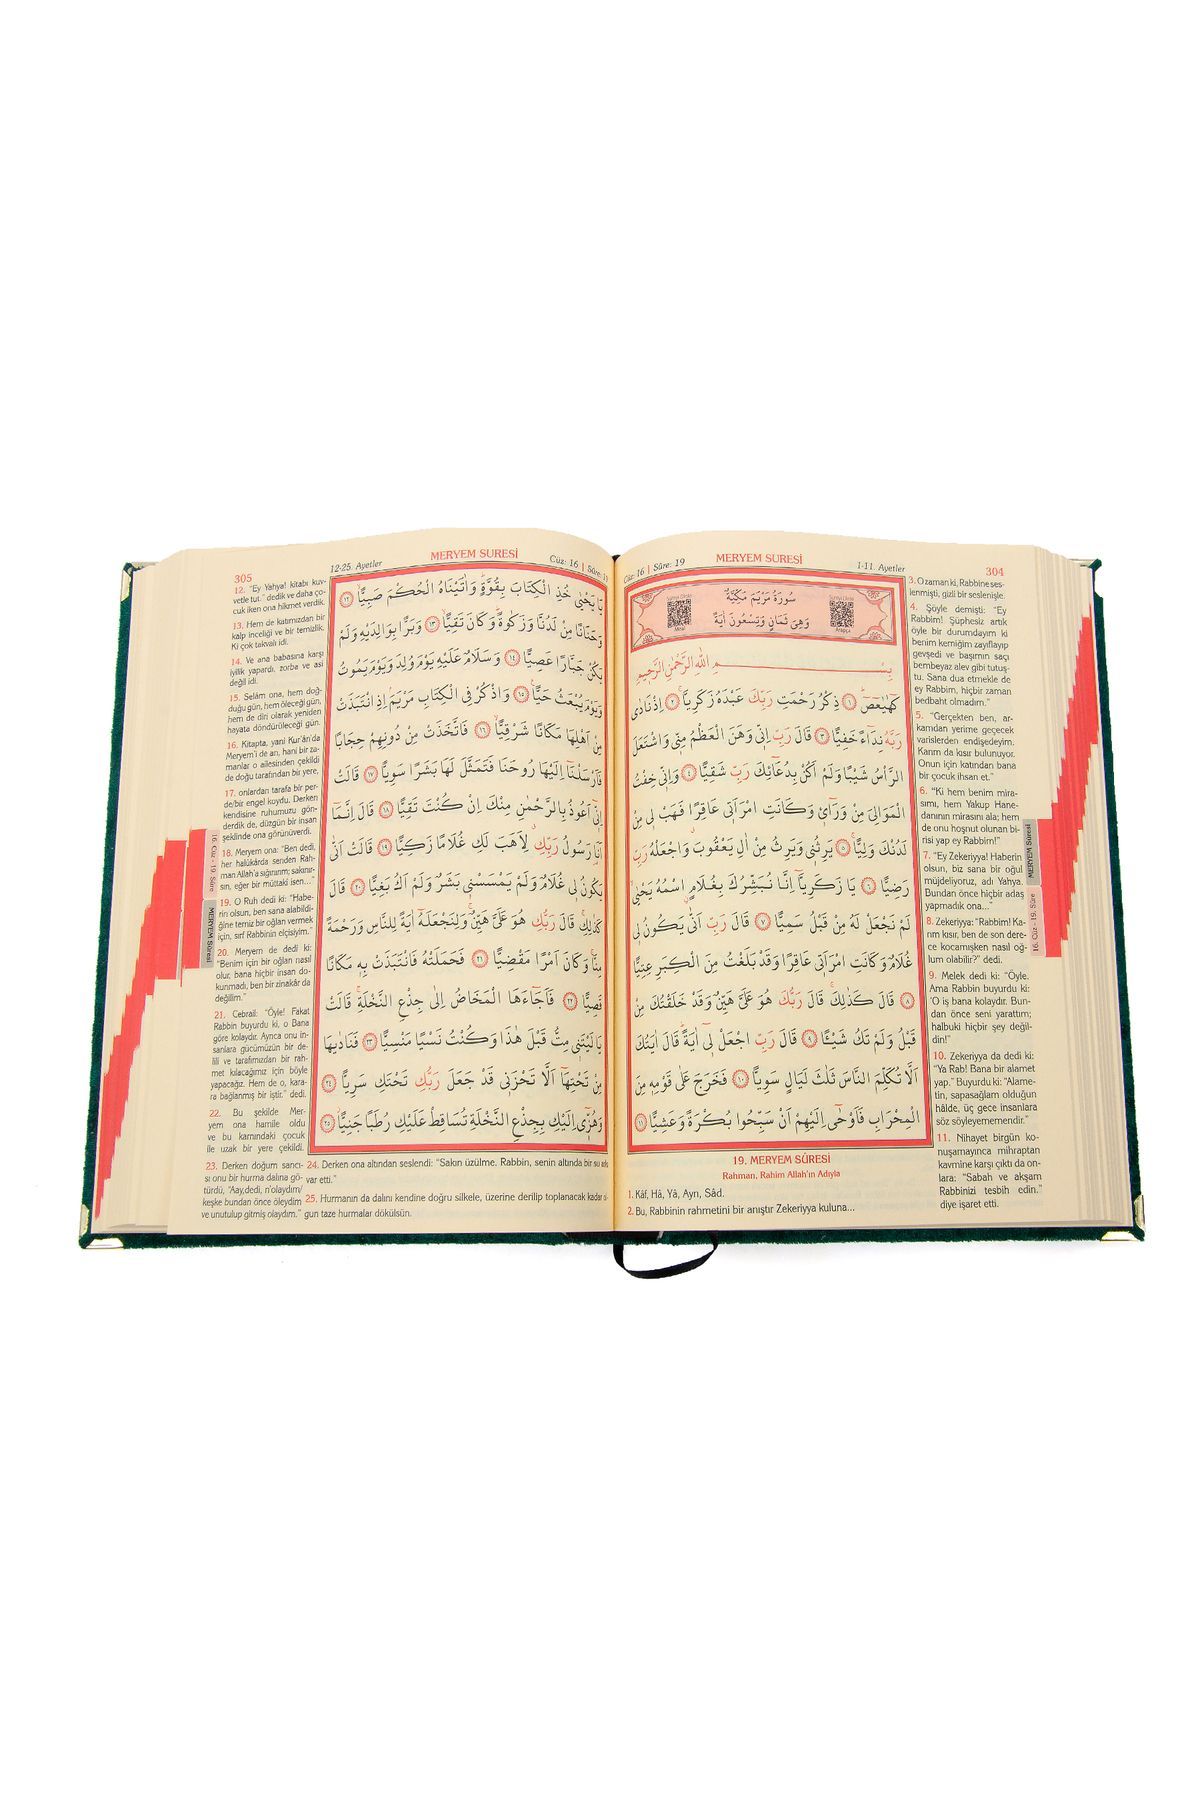 304
MERYEM SURESİ
Cüz: 16 | Sûre: 19
1-11. Ayetler
سُورَةُ مَرْيَمَ مَكِّيَّةٌ
وَهِيَ ثَمَانٍ وَتِسْعُونَ اٰيَةً
بِسْــــــمِ اللّٰهِ الرَّحْمٰنِ الرَّح۪يمِ
كٓهٰيٰعٓصٓ ﴿١﴾ ذِكْرُ رَحْمَتِ رَبِّكَ عَبْدَهُ زَكَرِيَّا ﴿٢﴾ اِذْ نَادٰى
رَبَّهُ نِدَٓاءً خَفِيًّا ﴿٣﴾ قَالَ رَبِّ اِنّ۪ي وَهَنَ الْعَظْمُ مِنّ۪ي وَاشْتَعَلَ
الرَّأْسُ شَيْبًا وَلَمْ اَكُنْ بِدُعَٓائِكَ رَبِّ شَقِيًّا ﴿٤﴾ وَاِنّ۪ي خِفْتُ
الْمَوَالِيَ مِنْ وَرَٓاء۪ي وَكَانَتِ امْرَاَت۪ي عَاقِرًا فَهَبْ ل۪ي مِنْ
لَدُنْكَ وَلِيًّا ﴿٥﴾ يَرِثُن۪ي وَيَرِثُ مِنْ اٰلِ يَعْقُوبَ وَاجْعَلْهُ رَبِّ
رَضِيًّا ﴿٦﴾ يَا زَكَرِيَّٓا اِنَّا نُبَشِّرُكَ بِغُلَامٍ اسْمُهُ يَحْيٰى
لَمْ نَجْعَلْ لَهُ مِنْ قَبْلُ سَمِيًّا ﴿٧﴾ قَالَ رَبِّ اَنّٰى يَكُونُ ل۪ي
غُلَامٌ وَكَانَتِ امْرَاَت۪ي عَاقِرًا وَقَدْ بَلَغْتُ مِنَ الْكِبَرِ عِتِيًّا
﴿٨﴾ قَالَ كَذٰلِكَ قَالَ رَبُّكَ هُوَ عَلَيَّ هَيِّنٌ وَقَدْ خَلَقْتُكَ مِنْ
قَبْلُ وَلَمْ تَكُ شَيْـًٔا ﴿٩﴾ قَالَ رَبِّ اجْعَلْ ل۪ٓي اٰيَةً قَالَ اٰيَتُكَ
اَلَّا تُكَلِّمَ النَّاسَ ثَلٰثَ لَيَالٍ سَوِيًّا ﴿١٠﴾ فَخَرَجَ عَلٰى قَوْمِه۪ مِنَ
الْمِحْرَابِ فَاَوْحٰٓى اِلَيْهِمْ اَنْ سَبِّحُوا بُكْرَةً وَعَشِيًّا ﴿١١﴾
19. MERYEM SÛRESİ
Rahman, Rahim Allah'ın Adıyla
1. Kâf, Hâ, Yâ, Ayn, Sâd.
2. Bu, Rabbinin rahmetini bir anıştır Zekeriyya kuluna...
3. O zaman ki, Rabbine ses-
lenmişti, gizli bir seslenişle.
4. Şöyle demişti: "Ey
Rabbim! Şüphesiz artık
öyle bir durumdayım ki
benim kemiğim zayıflayıp
gevşedi ve başımın saçı
bembeyaz alev gibi tutuş-
tu. Sana dua etmekle de
ey Rabbim, hiçbir zaman
bedbaht olmadım."
5. "Gerçekten ben, ar-
kamdan yerime geçecek
varislerden endişedeyim.
Karım da kısır bulunuyor.
Onun için katından bana
bir çocuk ihsan et."
6. "Ki hem benim mira-
sımı, hem Yakup Hane-
danının mirasını ala; hem
de onu hoşnut olunan bi-
risi yap ey Rabbim!"
7. "Ey Zekeriyya! Haberin
olsun, biz sana bir oğul
müjdeliyoruz, adı Yahya.
Bundan önce hiçbir adaş
yapmadık ona..."
8. Zekeriyya: "Rabbim! Ka-
rım kısır, ben de son dere-
ce kocamışken nasıl oğ-
lum olabilir?" dedi.
9. Melek dedi ki: "Öyle.
Ama Rabbin buyurdu ki:
'O iş bana kolaydır. Bun-
dan önce seni yarattım;
halbuki hiçbir şey değil-
din!"
10. Zekeriyya da dedi ki:
"Ya Rab! Bana bir alamet
yap." Buyurdu ki: "Alame-
tin, sapasağlam olduğun
hâlde, üç gece insanlara
söz söyleyememendir."
11. Nihayet birgün ko-
nuşamayınca mihraptan
kavmine karşı çıktı da on-
lara: "Sabah ve akşam
Rabbinizi tesbih edin."
diye işaret etti.
MERYEM Sûresi
16. Cüz - 19. Sûre
305
12-25. Ayetler
MERYEM SURESİ
Cüz: 16 | Sûre: 19
يَا يَحْيٰى خُذِ الْكِتَابَ بِقُوَّةٍ وَاٰتَيْنَاهُ الْحُكْمَ صَبِيًّا ﴿١٢﴾
وَحَنَانًا مِنْ لَدُنَّا وَزَكٰوةً وَكَانَ تَقِيًّا ﴿١٣﴾ وَبَرًّا بِوَالِدَيْهِ وَلَمْ
يَكُنْ جَبَّارًا عَصِيًّا ﴿١٤﴾ وَسَلَامٌ عَلَيْهِ يَوْمَ وُلِدَ وَيَوْمَ يَمُوتُ
وَيَوْمَ يُبْعَثُ حَيًّا ﴿١٥﴾ وَاذْكُرْ فِي الْكِتَابِ مَرْيَمَ اِذِ انْتَبَذَتْ
مِنْ اَهْلِهَا مَكَانًا شَرْقِيًّا ﴿١٦﴾ فَاتَّخَذَتْ مِنْ دُونِهِمْ حِجَابًا
فَاَرْسَلْنَٓا اِلَيْهَا رُوحَنَا فَتَمَثَّلَ لَهَا بَشَرًا سَوِيًّا ﴿١٧﴾ قَالَتْ
اِنّ۪ٓي اَعُوذُ بِالرَّحْمٰنِ مِنْكَ اِنْ كُنْتَ تَقِيًّا ﴿١٨﴾ قَالَ اِنَّمَٓا
اَنَا رَسُولُ رَبِّكِ لِاَهَبَ لَكِ غُلَامًا زَكِيًّا ﴿١٩﴾ قَالَتْ اَنّٰى
يَكُونُ ل۪ي غُلَامٌ وَلَمْ يَمْسَسْن۪ي بَشَرٌ وَلَمْ اَكُ بَغِيًّا ﴿٢٠﴾ قَالَ
كَذٰلِكِ قَالَ رَبُّكِ هُوَ عَلَيَّ هَيِّنٌ وَلِنَجْعَلَهُٓ اٰيَةً لِلنَّاسِ وَرَحْمَةً
مِنَّا وَكَانَ اَمْرًا مَقْضِيًّا ﴿٢١﴾ فَحَمَلَتْهُ فَانْتَبَذَتْ بِه۪ مَكَانًا
قَصِيًّا ﴿٢٢﴾ فَاَجَٓاءَهَا الْمَخَاضُ اِلٰى جِذْعِ النَّخْلَةِ قَالَتْ
يَا لَيْتَن۪ي مِتُّ قَبْلَ هٰذَا وَكُنْتُ نَسْيًا مَنْسِيًّا ﴿٢٣﴾ فَنَادٰيهَا
مِنْ تَحْتِهَٓا اَلَّا تَحْزَن۪ي قَدْ جَعَلَ رَبُّكِ تَحْتَكِ سَرِيًّا ﴿٢٤﴾
وَهُزّ۪ٓي اِلَيْكِ بِجِذْعِ النَّخْلَةِ تُسَاقِطْ عَلَيْكِ رُطَبًا جَنِيًّا ﴿٢٥﴾
12. "Ey Yahya! kitabı kuv-
vetle tut." dedik ve daha ço-
cuk iken ona hikmet verdik.
13. Hem de katımızdan bir
kalp inceliği ve bir temizlik.
Ki çok takvalı idi.
14. Ve ana babasına karşı
iyilik yapardı, zorba ve asi
değil idi.
15. Selâm ona, hem doğ-
duğu gün, hem öleceği gün,
hem de diri olarak yeniden
hayata döndürüleceği gün.
16. Kitapta, yani Kur'ân'da
Meryem'i de an, hani bir za-
manlar o ailesinden çekildi
de doğu tarafından bir yere,
17. onlardan tarafa bir per-
de/bir engel kuydu. Derken
kendisine ruhumuzu gön-
derdik de, düzgün bir insan
şeklinde ona görünüverdi.
18. Meryem ona: "Ben dedi,
her halükârda senden Rah-
man Allah'a sığınırım; sakınır-
sın, eğer bir müttaki isen..."
19. O Ruh dedi ki: "Habe-
rin olsun, ben sana alabildi-
ğine temiz bir oğlan vermek
için, sırf Rabbinin elçisiyim."
20. Meryem de dedi ki:
"Benim için bir oğlan nasıl
olur, bana hiçbir insan do-
kunmadı, ben bir zinakâr da
değilim."
21. Cebrail: "Öyle! Fakat
Rabbin buyurdu ki, o Bana
göre kolaydır. Ayrıca onu in-
sanlara gücümüzün bir de-
lili ve tarafımızdan bir rah-
met kılacağımız için böyle
yapacağız. Hem de o, kara-
ra bağlanmış bir iştir." dedi.
22. Bu şekilde Mer-
yem ona hamile oldu
ve bu karnındaki çocuk
ile uzak bir yere çekildi.
23. Derken doğum sancı-
sı onu bir hurma dalına gö-
türdü, "Aay,dedi, n'olaydım/
keşke bundan önce öleydim
ve unutulup gitmiş olaydım."
24. Derken ona altından seslendi: "Sakın üzülme. Rabbin, senin altında bir su arkı
var etti."
25. Hurmanın da dalını kendine doğru silkele, üzerine derilip toplanacak kadar ol-
gun taze hurmalar dökülsün.
16. Cüz - 19. Sûre
MERYEM Sûresi